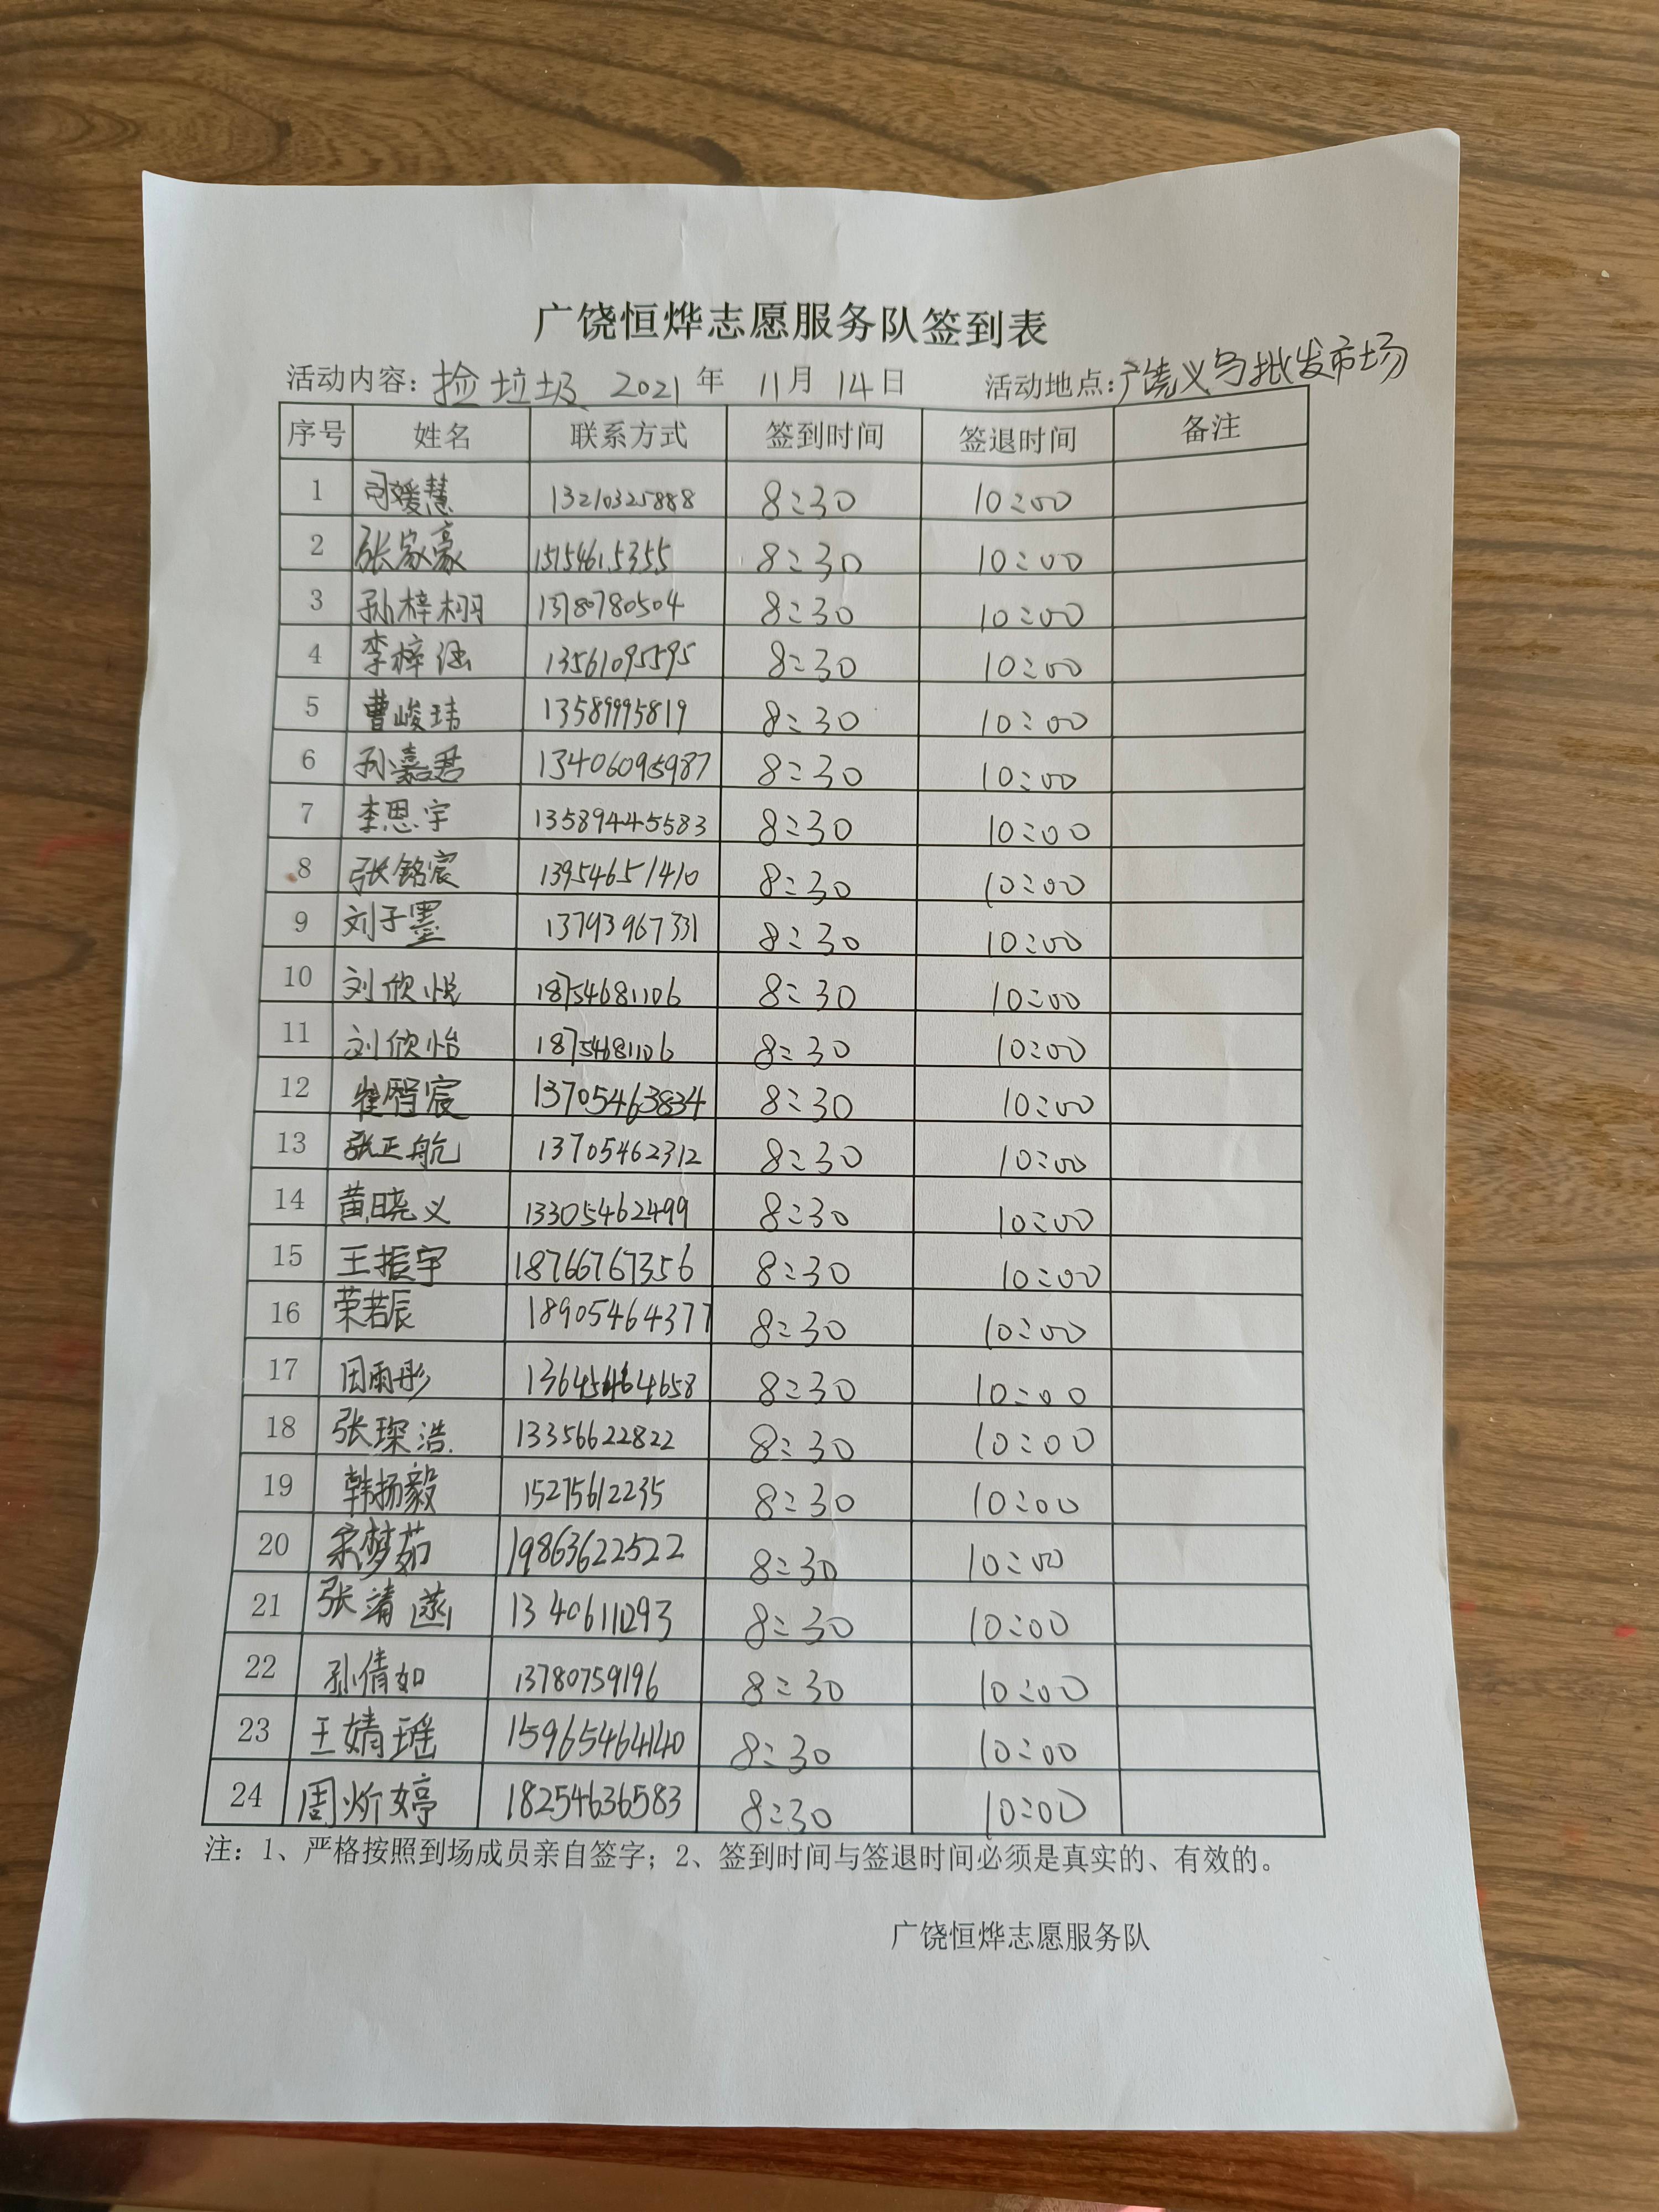 广饶恒烨志愿服务队签到表
活动内容：捡垃圾 2021年 11月 14日 活动地点：广饶义乌批发市场
序号 姓名 联系方式 签到时间 签退时间 备注
1 司媛慧 13210325888 8:30 10:00
2 张家豪 15154615355 8:30 10:00
3 孙梓栩 1378780504 8:30 10:00
4 李梓涵 13561095595 8:30 10:00
5 曹峻玮 13589995819 8:30 10:00
6 孙嘉君 13406095987 8:30 10:00
7 李思宇 13589445583 8:30 10:00
8 张铭宸 13954651410 8:30 10:00
9 刘子墨 13793967331 8:30 10:00
10 刘欣悦 18754681106 8:30 10:00
11 刘欣怡 18754681106 8:30 10:00
12 崔智宸 13705463834 8:30 10:00
13 张正航 13705462312 8:30 10:00
14 黄晓义 13305462499 8:30 10:00
15 王振宇 18766767356 8:30 10:00
16 荣若辰 18905464377 8:30 10:00
17 田雨彤 8:30 10:00
18 张琛浩 13356622822 8:30 10:00
19 韩扬毅 15275612235 8:30 10:00
20 宋梦茹 19863622522 8:30 10:00
21 张靖 13406111293 8:30 10:00
22 孙倩如 13780759196 8:30 10:00
23 王婧瑶 15965464140 8:30 10:00
24 周炘婷 18254636583 8:30 10:00
注：1、严格按照到场成员亲自签字；2、签到时间与签退时间必须是真实的、有效的。
广饶恒烨志愿服务队